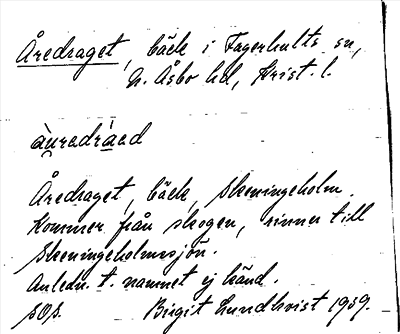 Åredraget, bäck i Fagerhults sn,
N. Åsbo hd, Krist. l.
àuredráed
Åredraget, bäck, Skeningeholm.
Kommer från skogen, rinner till
Skeningeholmssjön.
Anledn. t. namnet ej känd.
Birgit Lundkvist 1939.